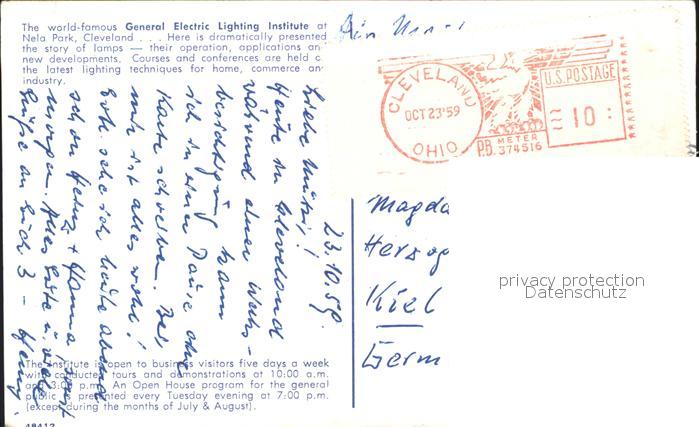 The world-famous General Electric Lighting Institute at
Nela Park, Cleveland . . . Here is dramatically presented
the story of lamps — their operation, applications an
new developments. Courses and conferences are held
the latest lighting techniques for home, commerce an
industry.
CLEVELAND
OCT 23'59
OHIO
U.S. POSTAGE
10
P.B. METER
374516
23.10.59.
Liebe Mutti!
Heute in Cleveland
während einer Werks-
besichtigung kann
ich in einer Pause
Karte schreiben. Bei
mir ist alles wohl!
sehe ich heute abend
schon Heinz + Hanna,
morgen. Alles Gute u. viele
Grüße an Euch 3 –
Magda
Herzog
Kiel
Germ
privacy protection
Datenschutz
The Institute is open to business visitors five days a week
with conducted tours and demonstrations at 10:00 a.m.
and 3:00 p.m. An Open House program for the general
public is presented every Tuesday evening at 7:00 p.m.
(except during the months of July & August).
48412